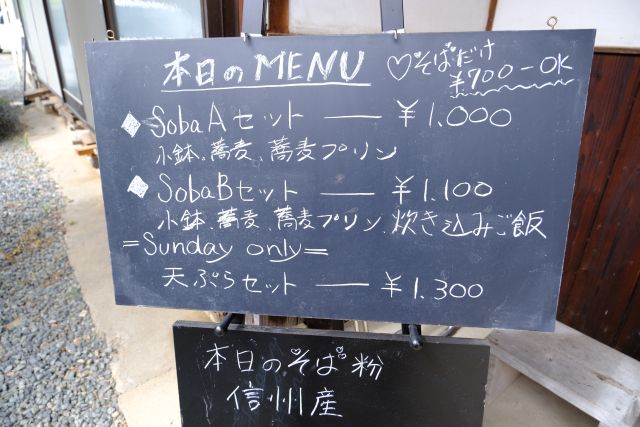 本日のMENU ♡そばだけ
¥700-OK
◆SobaAセット ― ¥1.000
小鉢、蕎麦、蕎麦プリン
◆SobaBセット ― ¥1.100
小鉢、蕎麦、蕎麦プリン、炊き込みご飯
=Sunday only=
天ぷらセット ― ¥1.300
本日のそば粉
信州産